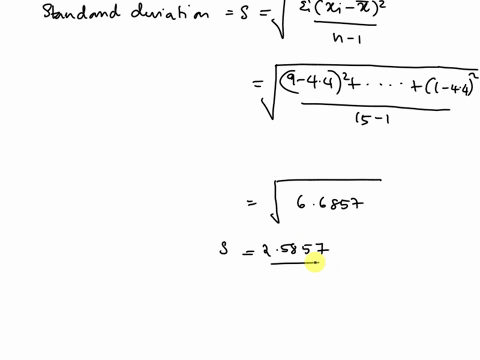 Standard deviation = S = √ Σi(xi-x̄)² / n-1
= √ (9-4.4)²+ ..... +(1-4.4)² / 15-1
= √ 6.6857
S = 2.5857